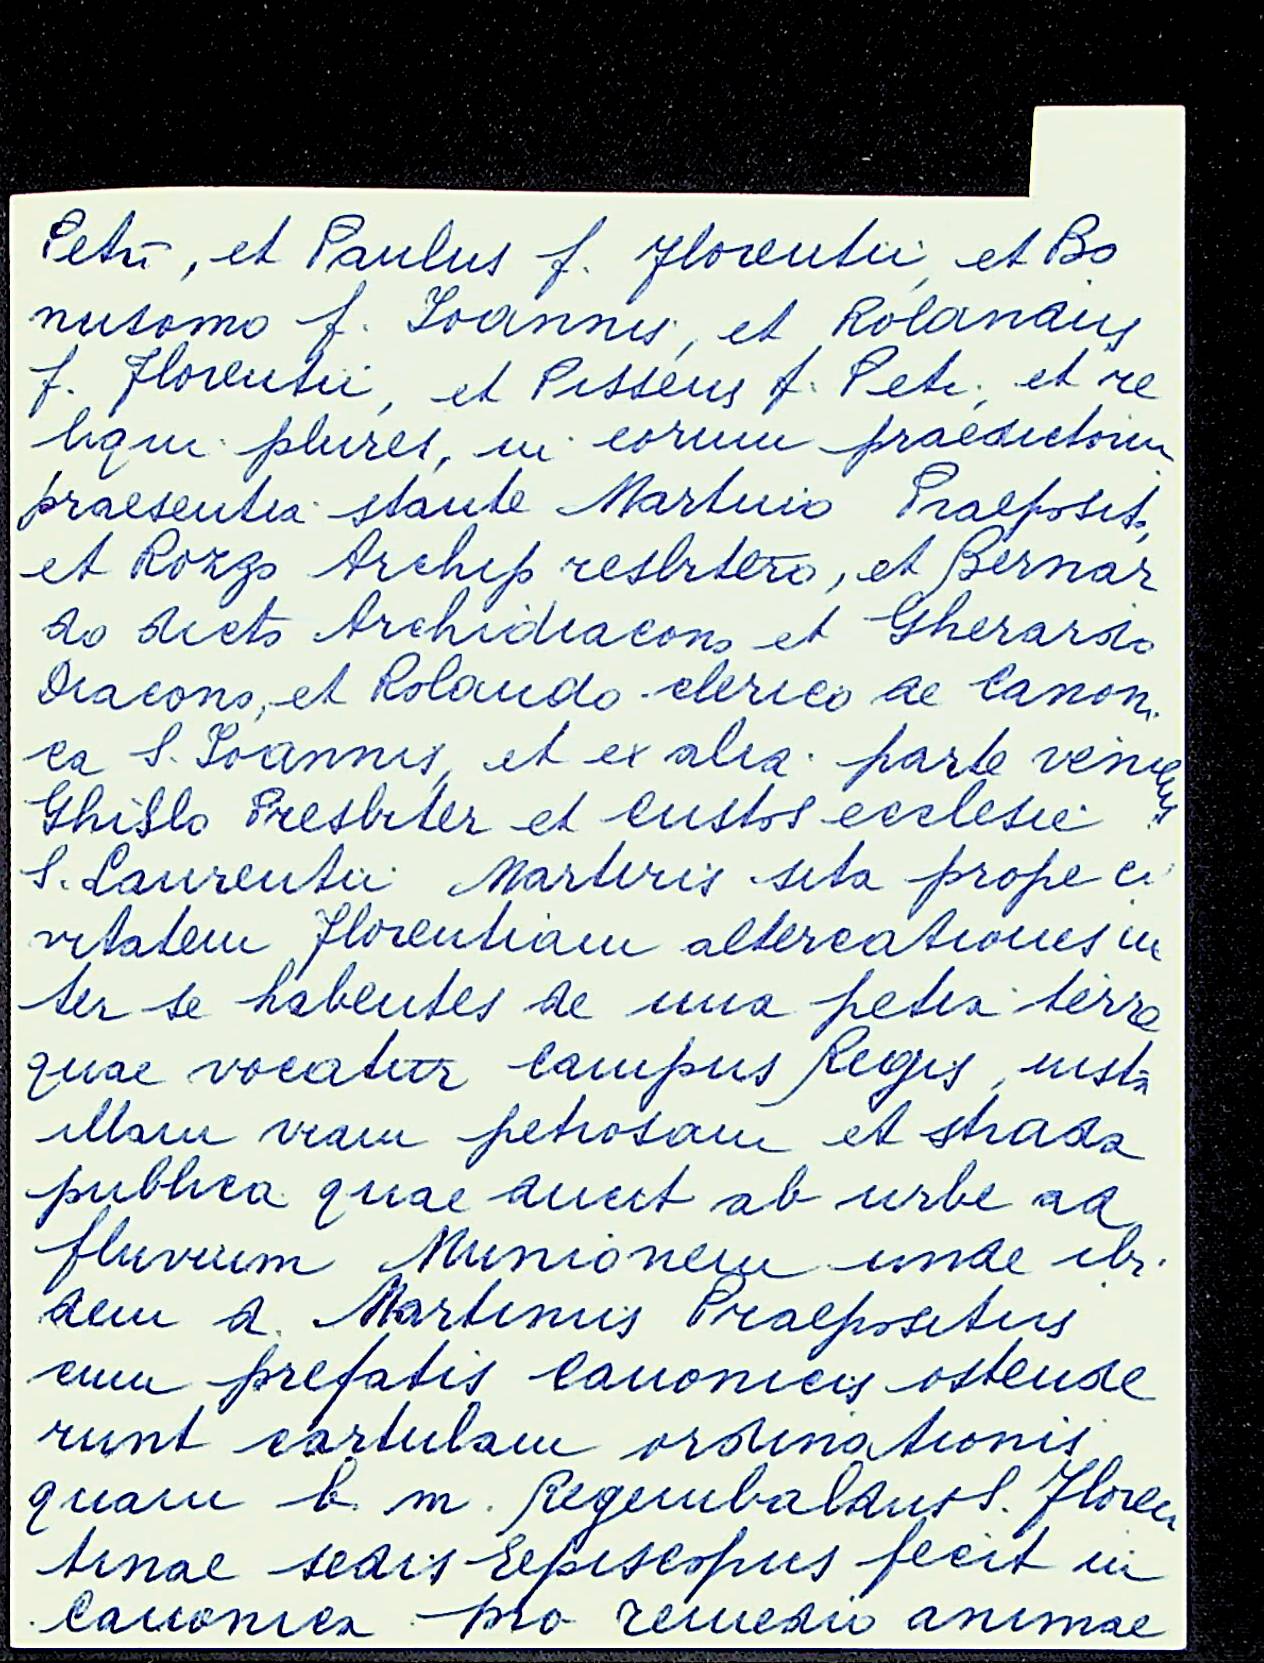 Petri, et Paulus f. Florentii, et Bo
nusomo f. Ioannis, et Rolandus
f. Florentii, et Pisseus f. Petr. et re
liqui plures, in eorum praedictorum
praesentia stante Martino Praeposito,
et Rozzo Archipresbitero, et Bernar
do dicto Archidiacono et Gherardo
Diacono, et Rolando clerico de Canoni
ca S. Ioannis, et ex alia parte veniens
Ghisllo Presbiter et Custos ecclesie
S. Laurentii Martiris sita prope ci
vitatem Florentiam altercationes in
ter se habentes de una petia terre
quae vocatur Campus Regis, iusta
illam viam petrosam et strada
publica quae ducit ab urbe ad
fluvium Munionem unde ibi
dem d. Martinus Praepositus
cum prefatis Canonicis ostende
runt cartulam ordinationis
quam b. m. Regembaldus S. Floren
tinae sedis Episcopus fecit in
Canonica pro remedio animae